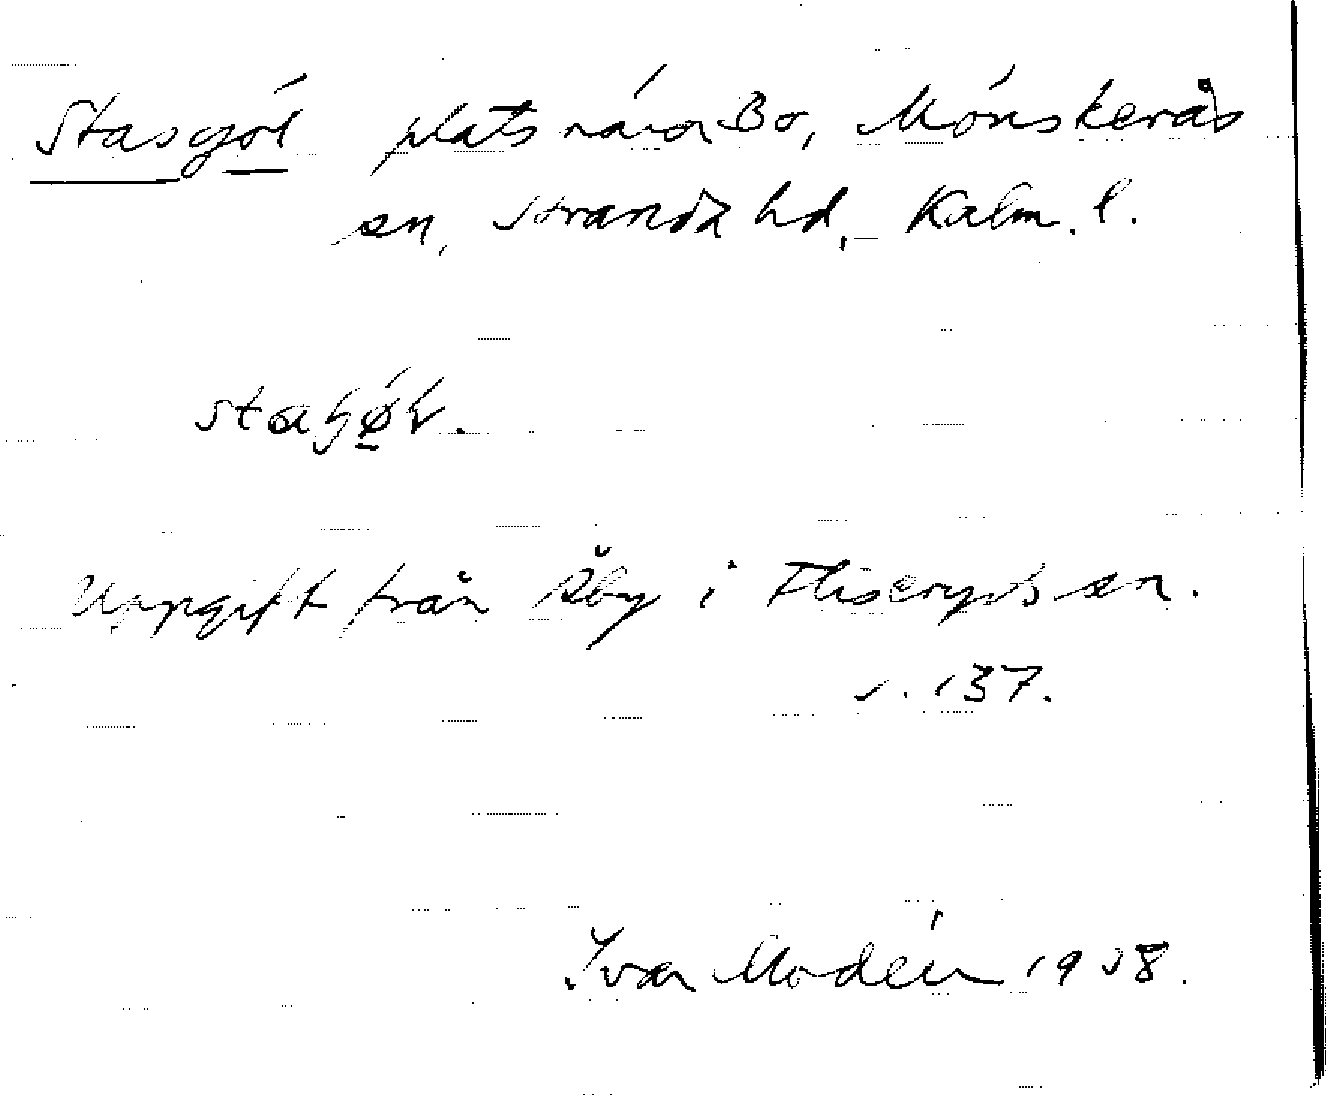 Stasgöl plats nära Bo, Mönsterås
sn, Stranda hd, Kalm. l.
Uppgift från Åby i Fliseryds sn.
s. 137.
Ivar Modéer 1938.